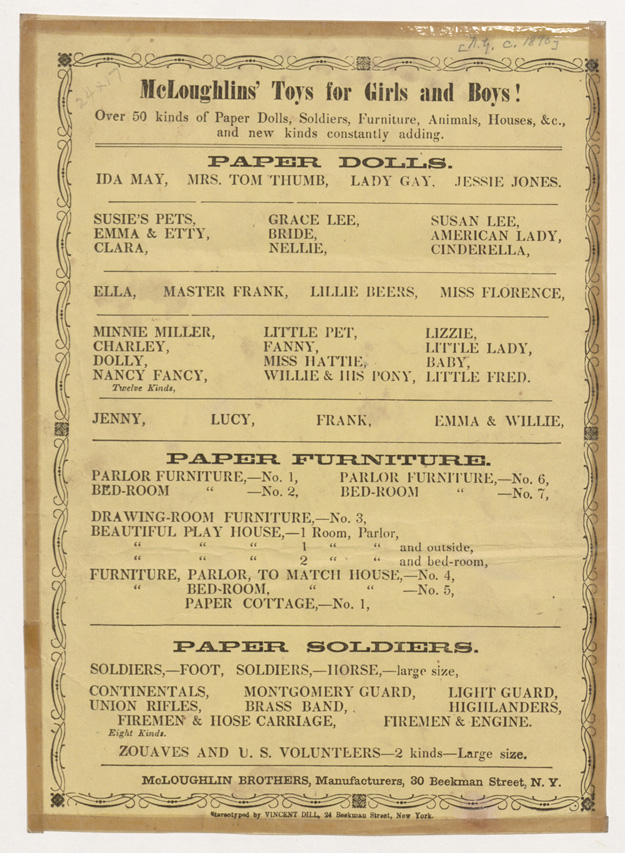 [N.Y. c. 1870]
24x17
McLoughlins' Toys for Girls and Boys!
Over 50 kinds of Paper Dolls, Soldiers, Furniture, Animals, Houses, &c.,
and new kinds constantly adding.
PAPER DOLLS.
IDA MAY, MRS. TOM THUMB, LADY GAY. JESSIE JONES.
SUSIE'S PETS, GRACE LEE, SUSAN LEE,
EMMA & ETTY, BRIDE, AMERICAN LADY,
CLARA, NELLIE, CINDERELLA,
ELLA, MASTER FRANK, LILLIE BEERS, MISS FLORENCE,
MINNIE MILLER, LITTLE PET, LIZZIE,
CHARLEY, FANNY, LITTLE LADY,
DOLLY, MISS HATTIE, BABY,
NANCY FANCY, WILLIE & HIS PONY, LITTLE FRED.
Twelve Kinds,
JENNY, LUCY, FRANK, EMMA & WILLIE,
PAPER FURNITURE.
PARLOR FURNITURE,—No. 1, PARLOR FURNITURE,—No. 6,
BED-ROOM “ —No. 2, BED-ROOM “ —No. 7,
DRAWING-ROOM FURNITURE,—No. 3,
BEAUTIFUL PLAY HOUSE,—1 Room, Parlor,
“ “ “ 1 “ “ and outside,
“ “ “ 2 “ “ and bed-room,
FURNITURE, PARLOR, TO MATCH HOUSE,—No. 4,
“ BED-ROOM, “ “ —No. 5,
PAPER COTTAGE,—No. 1,
PAPER SOLDIERS.
SOLDIERS,—FOOT, SOLDIERS,—HORSE,—large size,
CONTINENTALS, MONTGOMERY GUARD, LIGHT GUARD,
UNION RIFLES, BRASS BAND, HIGHLANDERS,
FIREMEN & HOSE CARRIAGE, FIREMEN & ENGINE.
Eight Kinds.
ZOUAVES AND U. S. VOLUNTEERS—2 kinds—Large size.
McLOUGHLIN BROTHERS, Manufacturers, 30 Beekman Street, N. Y.
Stereotyped by VINCENT DILL, 24 Beekman Street, New York.